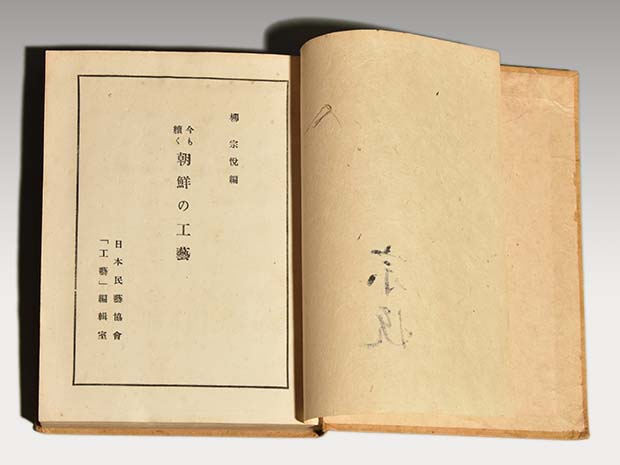 柳宗悅編
今も續く
朝鮮の工藝
日本民藝協會
「工藝」編輯室
宗悦